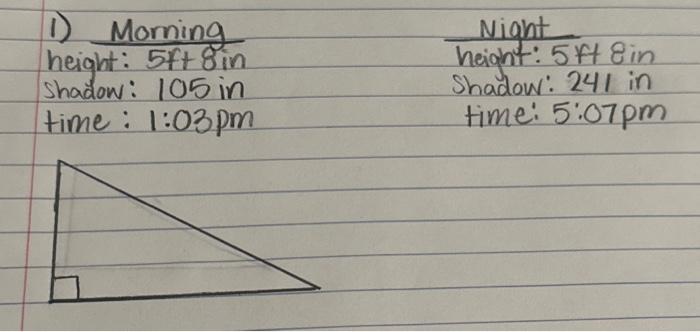 1) Morning
height: 5ft 8in
shadow: 105 in
time: 1:03pm
Night
height: 5ft 8in
Shadow: 241 in
time: 5:07pm